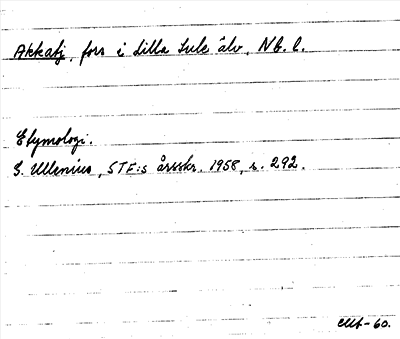 Akkatj, fors i Lilla Lule älv, Nb. l.
Etymologi.
S. Ullenius, STF:s årsskr. 1958, s. 292.
-60.